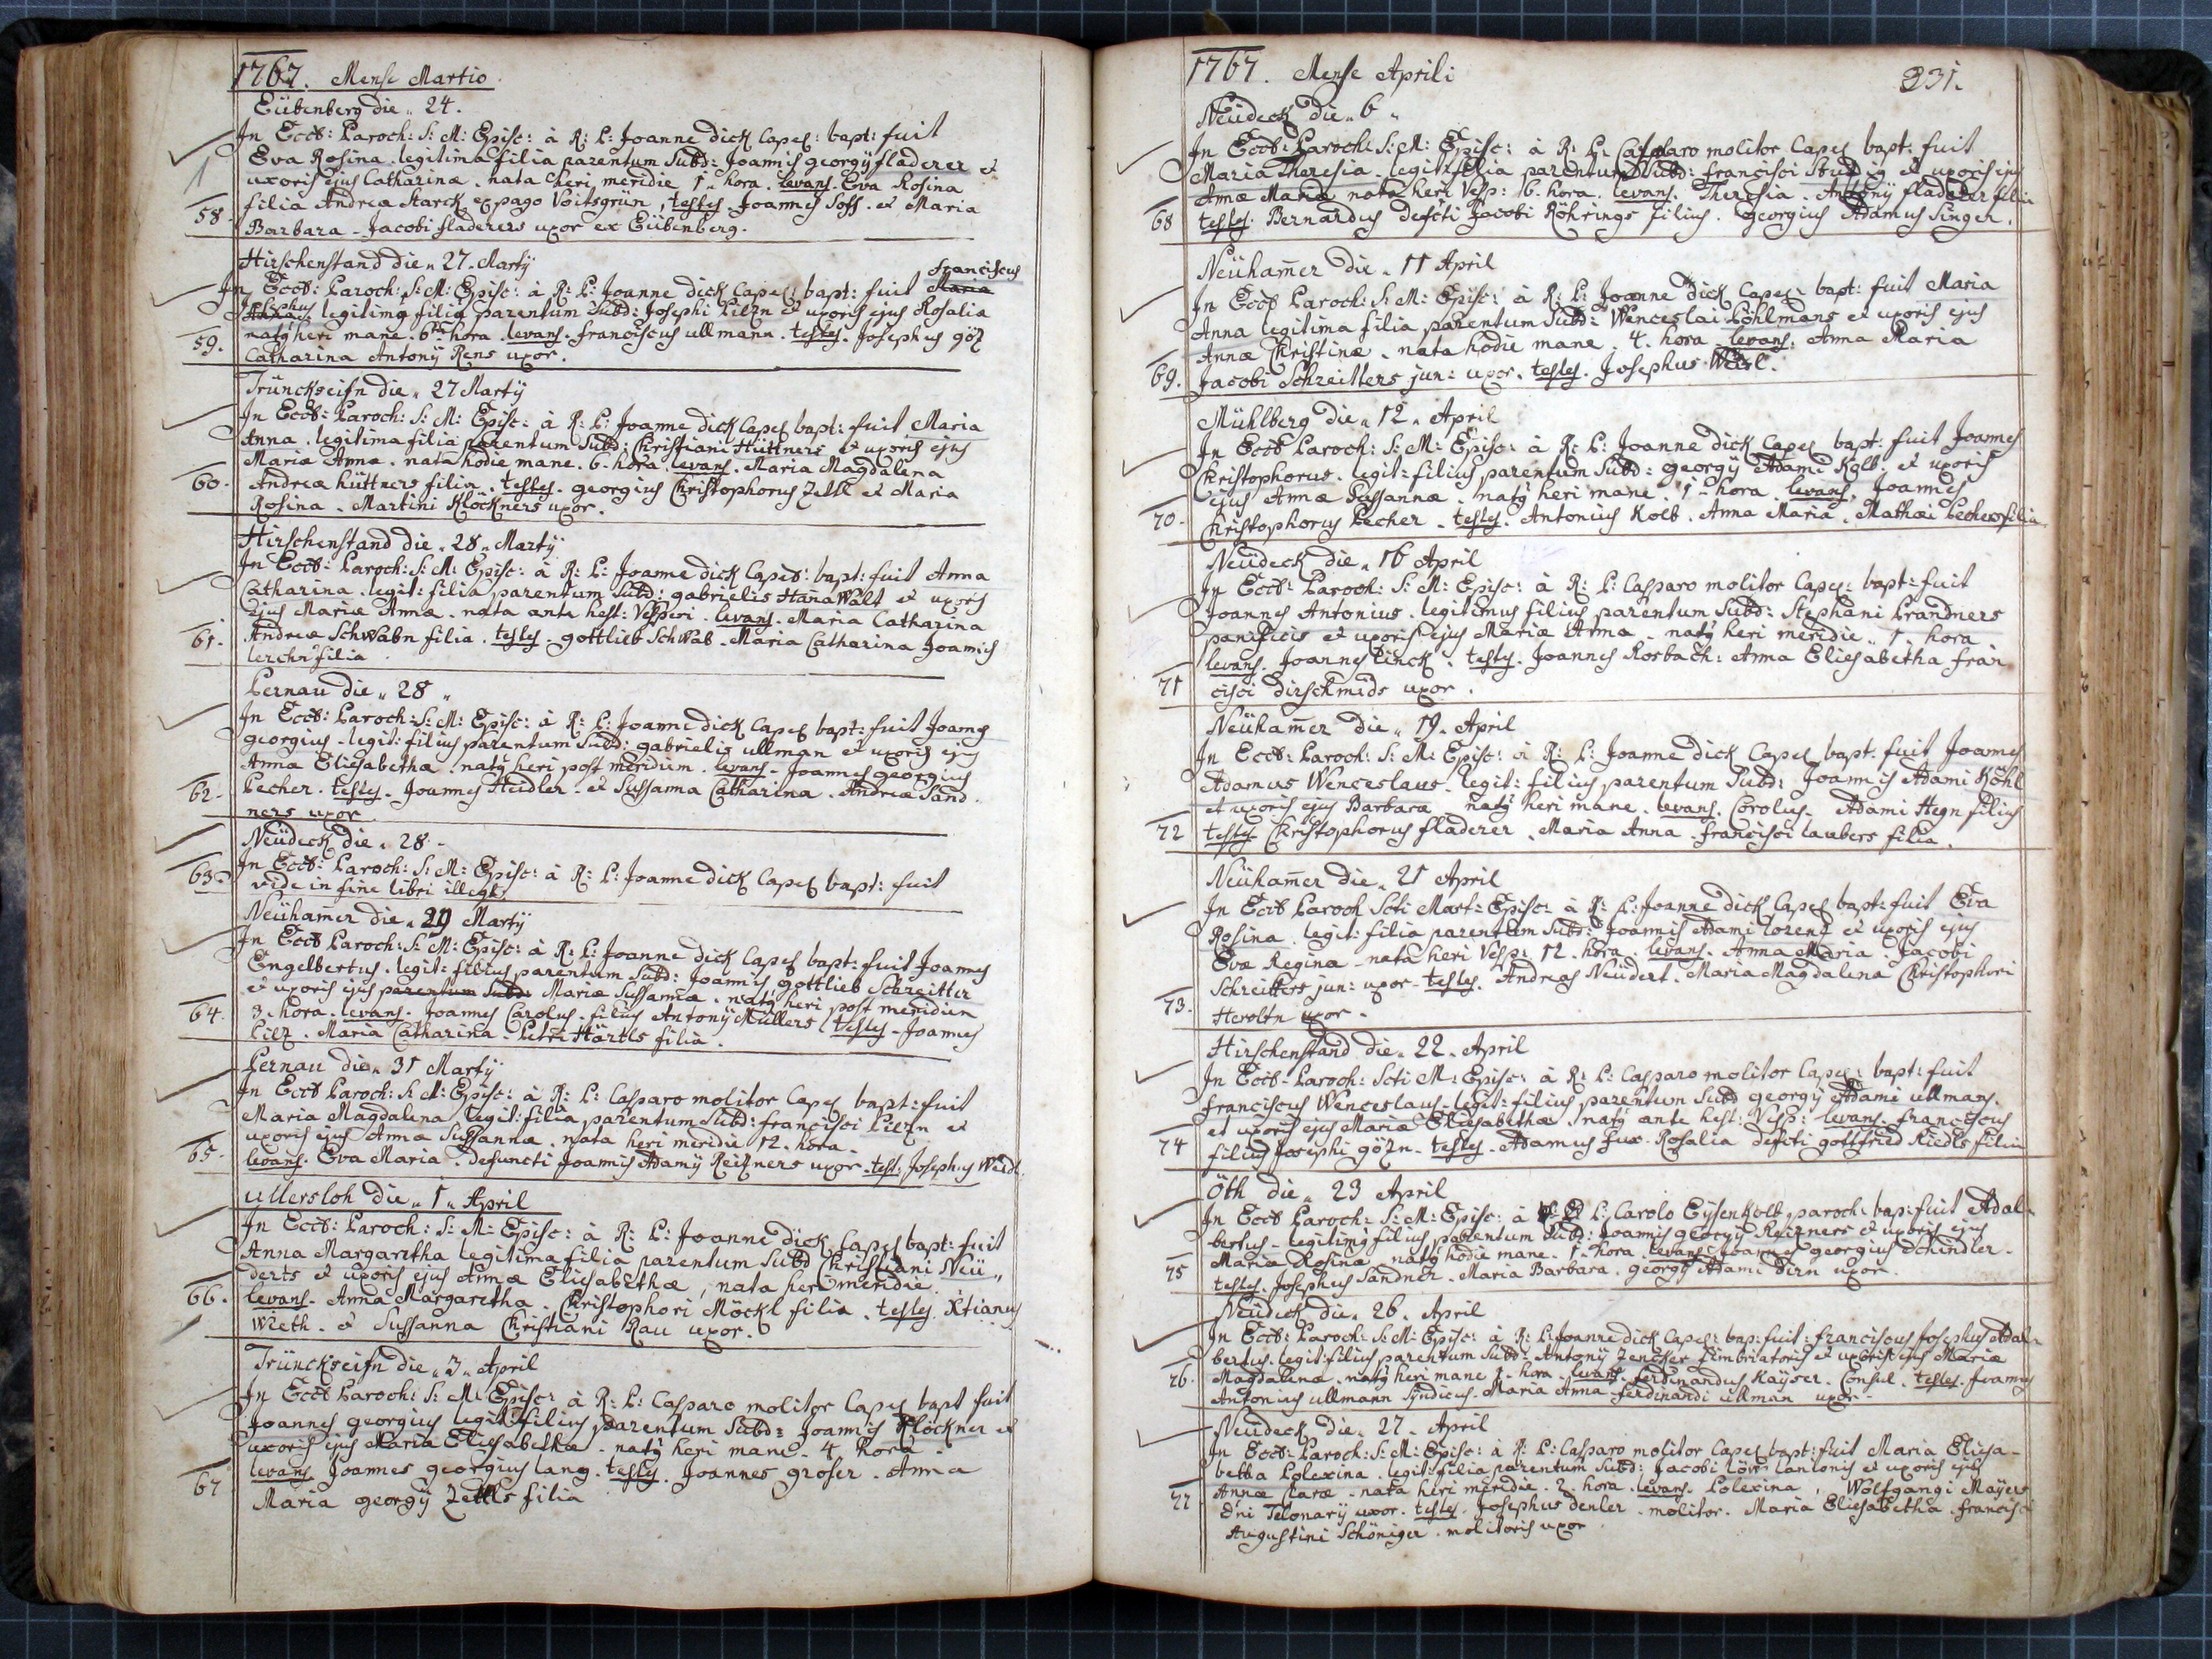 1767. Mense Martio.
Eübenberg die „ 24.
In Eccl: Paroch: S: M: Episc: à R: P: Joanne dick Capel: bapt: fuit
Eva Rosina. legitima filia parentum Subd: Joannis georgÿ fladerer et
uxoris ejus Catharinæ. nata heri meridie 1„ hora. levans. Eva Rosina
58. filia Andreæ Starck ex pago Voitsgrün, testes. Joannes Soss. et Maria
Barbara - Jacobi fladerers uxor ex Eübenberg.
Hirschenstand die „ 27. Martÿ
Franciscus
In Eccl: Paroch: S: M: Episc: à R: P: Joanne dick Capel: bapt: fuit Maria
Josephus legitima filia parentum Subd: Josephi Pilzn et uxoris ejus Rosalia
59. natÿ heri mane. 6ta hora. levans. franciscus ullmann. testes. Josephus göz
Catharina Antonÿ Rens uxor.
Trünckseifn die „ 27 Martÿ
In Eccl: Paroch: S: M: Episc: à R: P: Joanne dick Capel bapt: fuit Maria
Anna. legitima filia parentum Subd: Christiani Hüttners et uxoris ejus
Mariæ Annæ. nata hodie mane. 6. hora. levans. Maria Magdalena
60. Andreæ hüttners filia. testes. georgius Christophorus Zettl et Maria
Rosina. Martini Klöckners uxor.
Hirschenstand die „ 28 „ Martÿ
In Eccl: Paroch: S: M: Episc: à R: P: Joanne dick Capel: bapt: fuit Anna
Catharina. legit: filia parentum Subd: gabrielis Hana Wält et uxoris
ejus Mariæ Annæ. nata ante hest: Vesperi. levans. Maria Catharina
61. Andreæ Schwabn filia. testes. gottlieb Schwab. Maria Catharina Joannis
lerchn filia.
Pernau die „ 28 „
In Eccl: Paroch: S: M: Episc: à R: P: Joanne dick Capel bapt: fuit Joannes
georgius - legit: filius parentum Subd: gabrielis ullman et uxoris ejus
Annæ Eliesabethæ. natÿ heri post meridiem. levans - Joannes georgius
62. Pecher. testes. Joannes Heidler. et Sussanna Catharina. Andreæ Sand.
ners uxor.
Neüdeck die „ 28 -
In Eccl: Paroch: S: M: Episc: à R: P: Joanne dick Capel bapt: fuit
63. vide in fine libri illegt.
Neühamer die „ 29 Martÿ
In Eccl Paroch: S: M: Episc: à R: P: Joanne dick Capel bapt: fuit Joannes
Engelbertus. legit: filius parentum Subd: Joannis gottlieb Schreitter
et uxoris ejus parentum Subd: Mariæ Sussannæ. natÿ heri post meridiem
64. 3. hora. levans. Joannes Carolus. filius Antonÿ Müllers testes - Joannes
Pilz. Maria Catharina - Petri Härtls filia.
Pernau die „ 31 Martÿ
In Eccl Paroch: S: M: Episc: à R: P: Casparo molitor Capel bapt: fuit
Maria Magdalena legit: filia parentum Subd: francisci Pilzn et
uxoris ejus Annæ Sussannæ. nata heri meridie 12. hora.
65. levans. Eva Maria. defuncti Joannis Adamÿ Reizners uxor. test: Josephus Weidl.
ullersloh die „ 1 „ April
In Eccl: Paroch: S: M: Episc: à R: P: Joanne dick Capel bapt: fuit
Anna Margaretha legitima filia parentum Subd Christiani Neü„
derts et uxoris ejus Annæ Eliesabethæ, nata heri meridie.
66. levans - Anna Margaretha. Christophori Möckl filia. testes. Xtianus
Wieth. et Sussanna Christiani Rau uxor.
Trünckseifn die „ 3 „ April
In Eccl Paroch: S: M: Episc: à R: P: Casparo molitor Capel bapt fuit
Joannes georgius legit: filius parentum Subd: Joannis Klöckner et
uxoris ejus Maria Eliesabetha. natÿ heri mane. 4 hora.
levans Joannes georgius lang. testes. Joannes groser. Anna
67 Maria georgÿ Zettls filia
1767. Mense Aprili
231.
Neüdeck die „ 6 „
In Eccl: Paroch: S: M: Episc: à R: P: Casparo molitor Capel bapt: fuit
Maria Theresia. legit: filia parentum Subd: francisci Studig et uxoris ejus
Annæ Mariæ nata heri Vesp: 6. hora. levans. Theresia. Antonÿ fladerer filia
68 testes. Bernardus defcti Jacobi Röhrings filius. georgius Adamus Singer.
Neühamer die „ 11 April
In Eccl Paroch: S: M: Episc: à R: P: Joanne dick Capel bapt: fuit Maria
Anna legitima filia parentum Subd: Wenceslai Pöhlmans et uxoris ejus
Annæ Christinæ. nata hodie mane. 4. hora. levans. Anna Maria
69. Jacobi Schreitters jun: uxor. testes. Josephus Weisl.
Mühlberg die „ 12 „ April
In Eccl Paroch: S: M: Episc: à R: P: Joanne dick Capel bapt: fuit Joannes
Christophorus. legit: filius parentum Subd: georgÿ Adami Kolb: et uxoris
ejus Annæ Sussannæ. natÿ heri mane. 1 - hora. levans. Joannes
70. Christophorus Pecher. testes. Antonius Kolb. Anna Maria. Mathæi Pechers filia.
Neüdeck die „ 16 April
In Eccl: Paroch: S: M: Episc: à R: P: Casparo molitor Capel: bapt: fuit
Joannes Antonius. legitimus filius parentum Subd: Stephani Prandners
panificis et uxoris ejus Mariæ Annæ. natÿ heri meridie. 1. hora
levans. Joannes Pinck. testes. Joannes Rosbach: Anna Eliesabetha fran
71 cisci dirschmids uxor.
Neühamer die „ 19. April
In Eccl: Paroch: S: M: Episc: à R: P: Joanne dick Capel bapt: fuit Joannes
Adamus Wenceslaus. legit: filius parentum Subd: Joannis Adami Köhl
et uxoris ejus Barbaræ natÿ heri mane. levans. Corolus. Adami Hegn filius
72 testes Christophorus fladerer. Maria Anna. francisci laubers filia.
Neühamer die „ 21 April
In Eccl Paroch Scti Mart: Episc: à R: P: Joanne dick Capel bapt: fuit Eva
Rosina. legit: filia parentum Subd: Joannis Adami lorenz et uxoris ejus
Evæ Reginæ - nata heri Vesp: 12. hora. levans. Anna Maria. Jacobi
Schreitters jun: uxor - testes. Andreas Neüdert. Maria Magdalena Christophori
73. Heroltn uxor.
Hirschenstand die „ 22. April
In Eccl. Paroch: Scti M: Episc: à R: P: Casparo molitor Capel: bapt: fuit
franciscus Wenceslaus. legit: filius parentum Subd georgÿ Adami ullman.
et uxoris ejus Mariæ Eliesabethæ natÿ ante hest: Vesp: levans. franciscus
74 filius Josephi gözn. testes. Adamus fux. Rosalia defcti gottfried Riedls filia
öth die „ 23 April
In Eccl Paroch: S: M: Episc: à P: Carolo Eysenkolb paroch: bap: fuit Adal„
bertus. legitimÿ filius parentum Subd: Joannis georgÿ Reizners et uxoris ejus
Mariæ Rosinæ natÿ hodie mane. 1. hora. levans Joannes georgius Schindler.
75 testes. Josephus Sandner. Maria Barbara. georgÿ Adami dirn uxor.
Neüdeck die. 26. April
In Eccl: Paroch: S: M: Episc: à R: P: Joanne dick Capel: bap: fuit: franciscus Josephus Adal„
bertus. legit: filius parentum Subd: Antonÿ Zencker fimbriatoris et uxoris ejus Mariæ
76. Magdalenæ. natÿ heri mane 1. hora. levans. ferdinandus Kaÿser. Consul. testes. Joannes
Antonius ullmann Syndicus. Maria Anna. ferdinandi ullman uxor.
Neüdeck die. 27. April
In Eccl: Paroch: S: M: Episc: à R: P: Casparo molitor Capel bapt: fuit Maria Eliesa-
betha Polexina. legit: filia parentum Subd: Jacobi löw: lanionis et uxoris ejus
77 Annæ Claræ. nata heri meridie. 2. hora. levans. Polexina, Wolfgangi Mayers
dni Telonarÿ uxor. testes. Josephus denler. molitor. Maria Eliesabetha. francisci
Augustini Schöniger. molitoris uxor